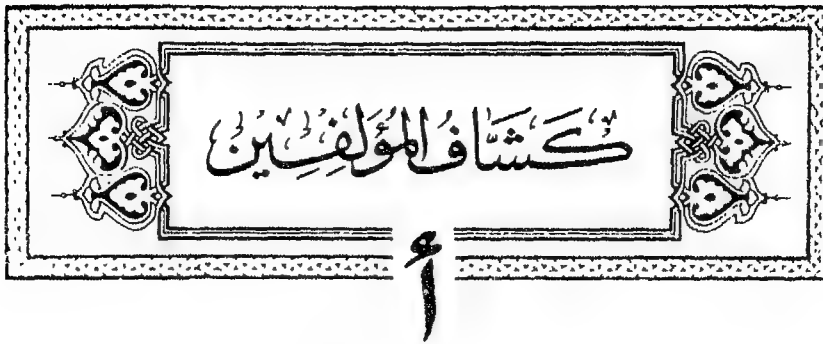 كَشَّافُ المُؤَلِفِين
أ